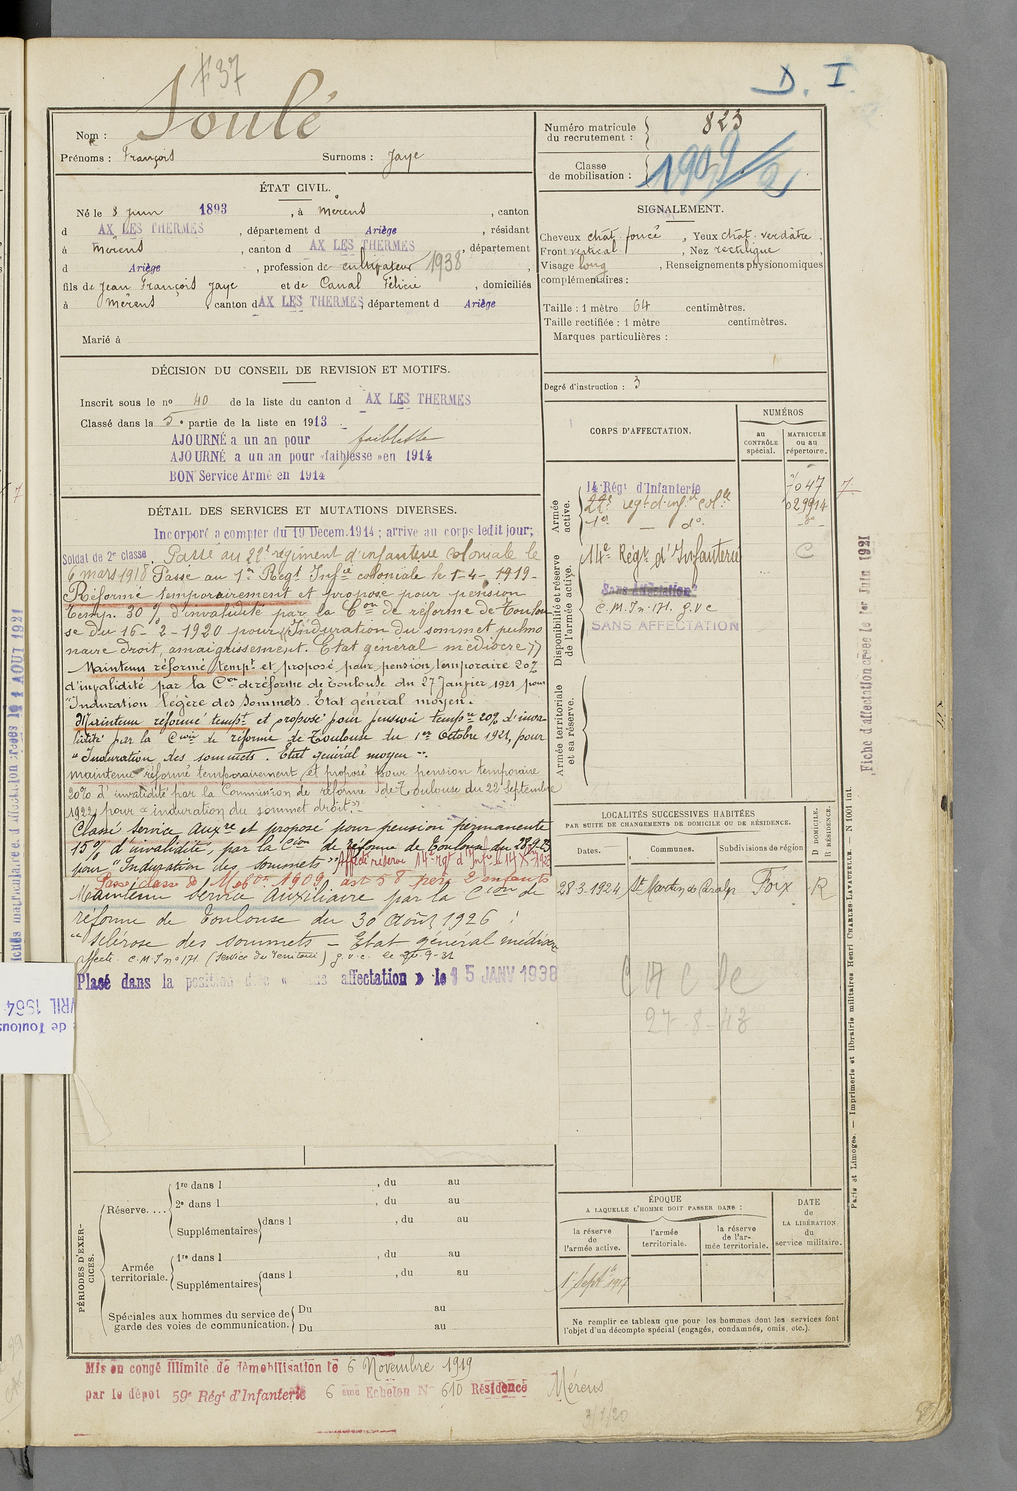 F 37
D. I.
Nom : Soulé
Prénoms : François Surnoms : Jaye
Numéro matricule
du recrutement : 823
Classe
de mobilisation : 1909/2
ÉTAT CIVIL.
Né le 8 juin 1893, à Mérens, canton
d AX LES THERMES, département d Ariège, résidant
à Mérens, canton d AX LES THERMES, département
d Ariège, profession de cultivateur 1938,
fils de Jean François Jaye et de Canal Félicie, domiciliés
à Mérens, canton d AX LES THERMES, département d Ariège
Marié à
SIGNALEMENT.
Cheveux chat. foncé, Yeux chat. verdâtre,
Front vertical, Nez rectiligne,
Visage long, Renseignements physionomiques
complémentaires :
Taille : 1 mètre 64 centimètres.
Taille rectifiée : 1 mètre centimètres.
Marques particulières :
Degré d'instruction : 3
DÉCISION DU CONSEIL DE REVISION ET MOTIFS.
Inscrit sous le no 40 de la liste du canton d AX LES THERMES
Classé dans la 5e partie de la liste en 1913
AJOURNÉ a un an pour faiblesse
AJOURNÉ a un an pour «faiblesse» en 1914
BON Service Armé en 1914
CORPS D'AFFECTATION.
NUMÉROS
au
CONTRÔLE
spécial.
MATRICULE
ou au
répertoire.
Armée
active.
14e Régt d'Infanterie 7047 7
22e régt d'inf. colle 029914
1er — do
Disponibilité et réserve
de l'armée active.
14e Régt d'Infanterie C
Sans Affectation
C.M.In. 171. g.v.c
SANS AFFECTATION
Armée territoriale
et sa réserve.
DÉTAIL DES SERVICES ET MUTATIONS DIVERSES.
Incorporé a compter du 19 Decem. 1914; arrive au corps ledit jour;
Soldat de 2e classe. Passé au 22e régiment d'infanterie coloniale le
6 mars 1918 Passé au 1er Régt Infie coloniale le 1-4-1919-
Réformé temporairement et proposé pour pension
temp. 30 % d'invalidité par la Con de réforme de Toulou
se du 16-2-1920 pour «Induration du sommet pulmo
naire droit, amaigrissement. Etat général médiocre»
Maintenu réformé tempt et proposé pour pension temporaire 20%
d'invalidité par la Con de réforme de Toulouse du 27 Janvier 1921 pour
"Induration légère des sommets. Etat général moyen.
Maintenu réformé tempt et proposé pour pension tempre 20% d'inva-
lidité par la Cion de réforme de Toulouse du 1er Octobre 1921, pour
"Induration des sommets. Etat général moyen".
maintenu réformé temporairement et proposé pour pension temporaire
20% d'invalidité par la Commission de réforme de Toulouse du 22 Septembre
1922 pour «induration du sommet droit.»
Classé service auxre et proposé pour pension permanente
15% d'invalidité, par la Cion de réforme de Toulouse du 28-9-23
pour "Induration des sommets"
Passé classe de Mobon 1909, art 58 père 2 enfants
Maintenu service auxiliaire par la Cion de
réforme de Toulouse du 30 Août 1926 :
"Sclérose des sommets — Etat général médiocre
affecté C.M.I no 171 (service du Territoire) g.v.c.
Placé dans la position dite « sans affectation » le 15 JANV 1938
LOCALITÉS SUCCESSIVES HABITÉES
PAR SUITE DE CHANGEMENTS DE DOMICILE OU DE RÉSIDENCE.
Dates. Communes. Subdivisions de région
D DOMICILE.
R RÉSIDENCE.
28.3.1924 St Martin de Caralp Foix R
27-8-43
PÉRIODES D'EXER-
CICES.
Réserve....
1re dans l , du au
2e dans l , du au
Supplémentaires dans l , du au
Armée
territoriale.
1re dans l , du au
Supplémentaires dans l , du au
Spéciales aux hommes du service de
garde des voies de communication.
Du au
Du au
ÉPOQUE
A LAQUELLE L'HOMME DOIT PASSER DANS :
la réserve
de
l'armée active.
l'armée
territoriale.
la réserve
de l'ar-
mée territoriale.
DATE
de
LA LIBÉRATION
du
service militaire.
1er Septre 1917
Ne remplir ce tableau que pour les hommes dont les services font
l'objet d'un décompte spécial (engagés, condamnés, omis, etc.).
Mis en congé illimité de démobilisation le 6 Novembre 1919
par le dépot 59e Régt d'Infanterie 6 ème Echelon No 610 Résidence Mérens
3/1/20
Fiche d'affectation créée le 1er Juin 1921
Paris et Limoges. — Imprimerie et librairie militaires Henri CHARLES-LAVAUZELLE. — N 1001 int.